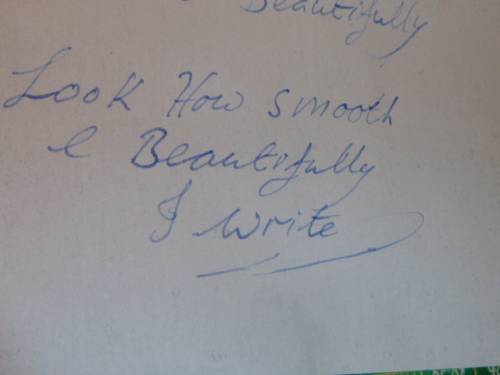 Beautifully
Look How smooth
& Beautifully
I write